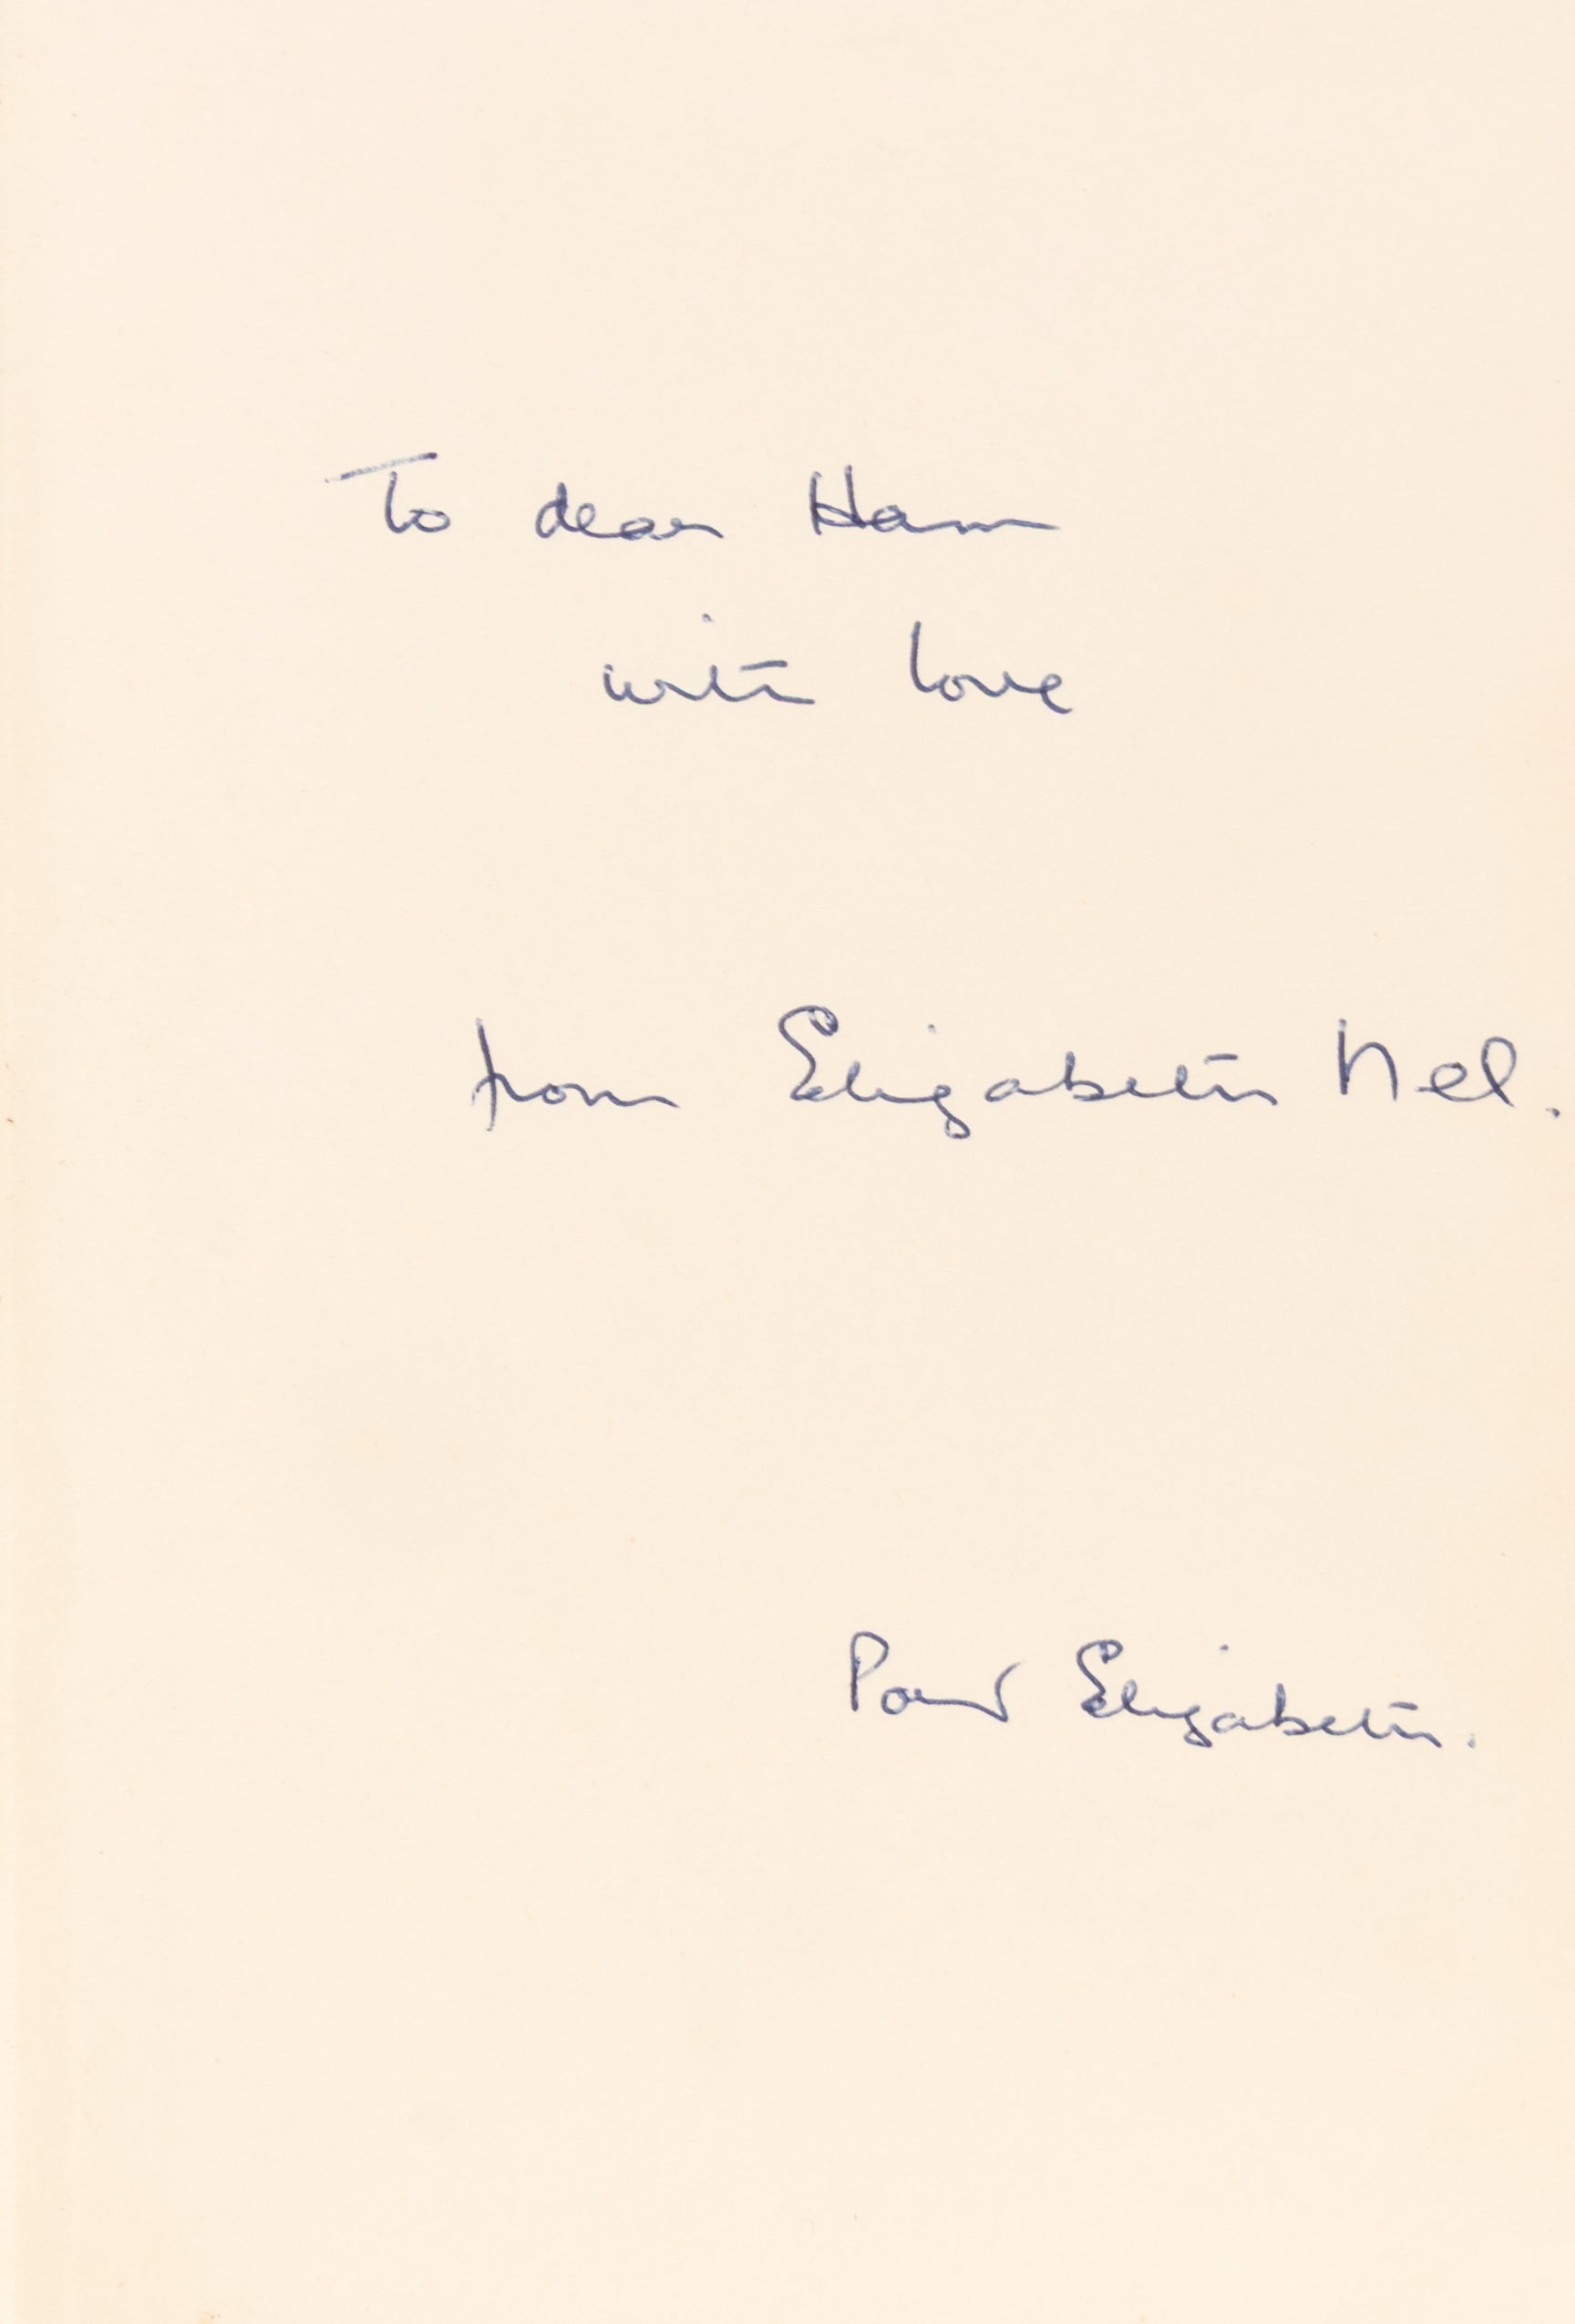 To dear Ham
with love
from Elizabeth Nel.
Port Elizabeth.